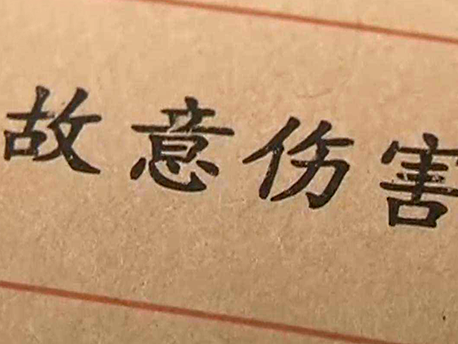 故意伤害